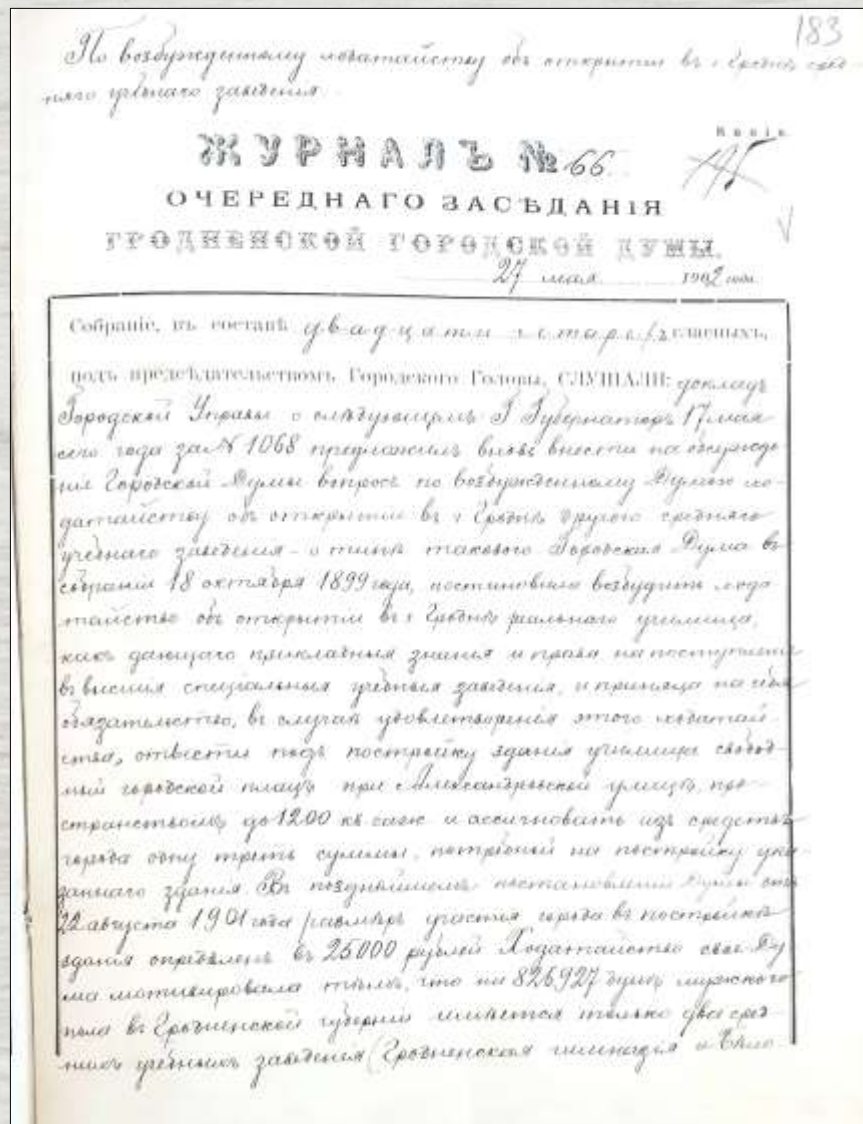 183
По возбужденному ходатайству объ открытіи въ г. Гроднѣ сред-
няго учебнаго заведенія.
Копія.
ЖУРНАЛЪ № 66
ОЧЕРЕДНАГО ЗАСѢДАНІЯ
ГРОДНЕНСКОЙ ГОРОДСКОЙ ДУМЫ.
27 мая 1902 года.
Собраніе, въ составѣ двадцати четырехъ гласныхъ,
подъ предсѣдательствомъ Городского Головы, СЛУШАЛИ: докладъ
Городской Управы о слѣдующемъ: Г. Губернаторъ 17 мая
сего года за № 1068 предложилъ вновь внести на обсужде-
ніе Городской Думы вопросъ по возбужденному Думою хо-
датайству объ открытіи въ г. Гроднѣ другого средняго
учебнаго заведенія - о типѣ такового. Городская Дума въ
собраніи 18 октября 1899 года, постановила возбудить хода
тайство объ открытіи въ г. Гроднѣ реальнаго училища,
какъ дающаго прикладныя знанія и права на поступленіе
въ высшія спеціальныя учебныя заведенія, и приняла на себя
обязательство, въ случаѣ удовлетворенія этого ходатай
ства, отвести подъ постройку зданія училища свобод-
ный городской плацъ при Александровской улицѣ, про-
странствомъ до 1200 кв саж и ассигновать изъ средствъ
города одну треть суммы, потребной на постройку ука
заннаго зданія. Въ позднѣйшемъ постановленіи Думы отъ
22 августа 1901 года размѣръ участія города въ постройкѣ
зданія опредѣленъ въ 25000 рублей. Ходатайство свое Ду
ма мотивировала тѣмъ, что на 826927 душъ мужского
пола въ Гродненской губерніи имѣется только два сред-
нихъ учебныхъ заведенія (Гродненская гимназія и Бѣло